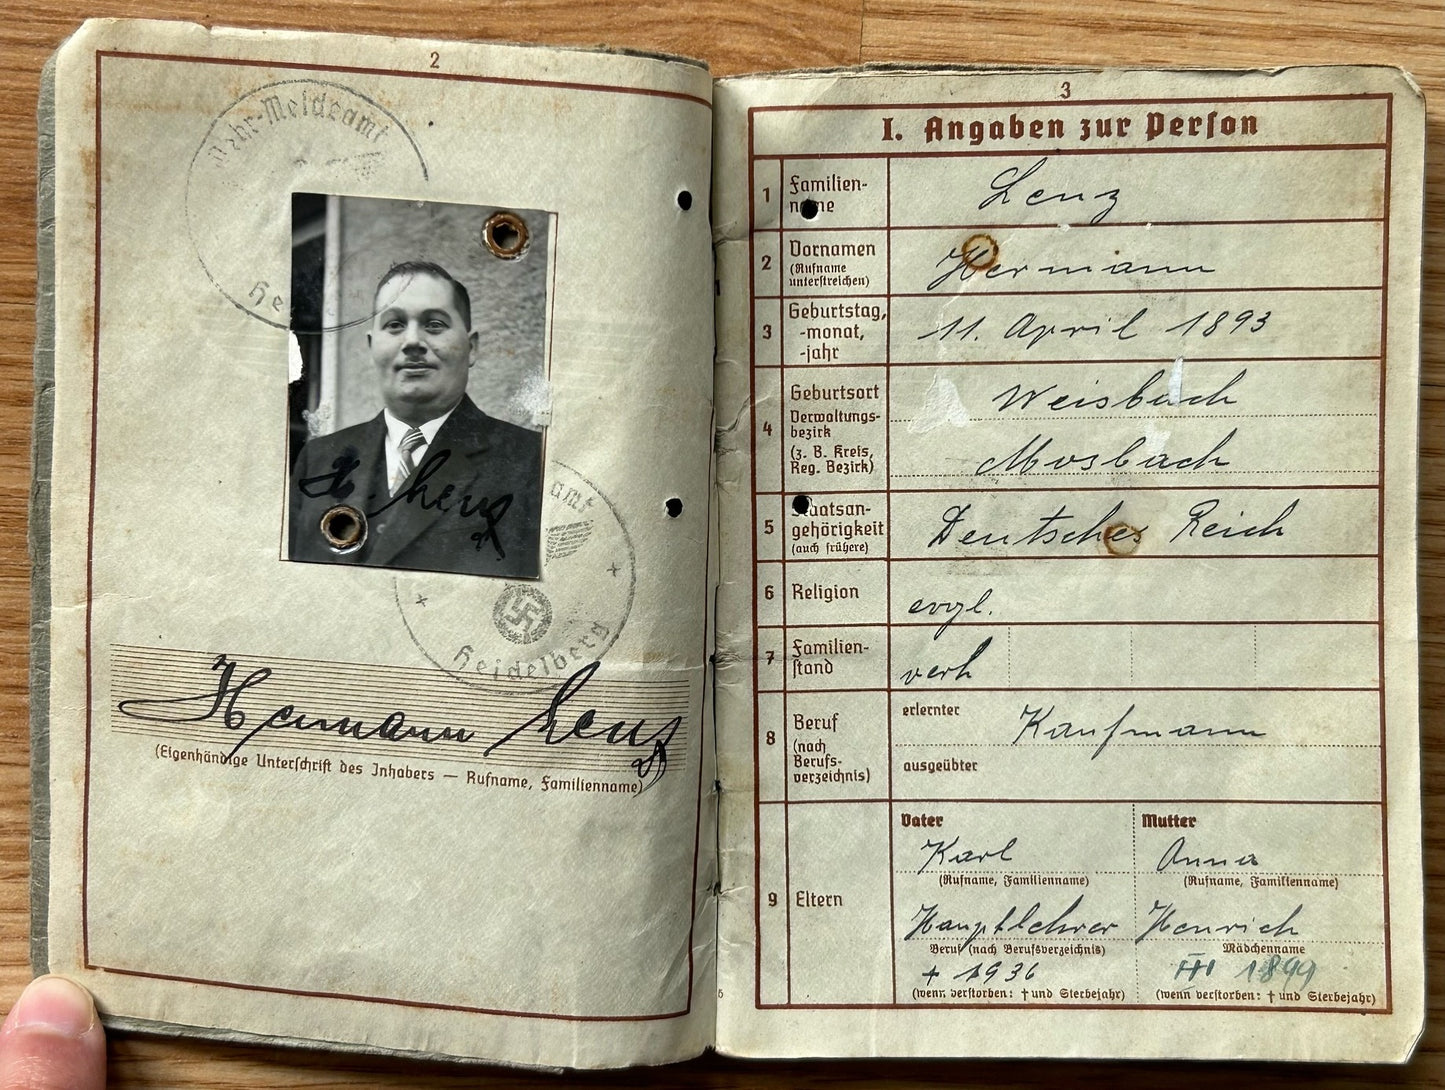 2
Wehr-Meldeamt
Hei
H. Lenz
amt
Heidelberg
Hermann Lenz
(Eigenhändige Unterschrift des Inhabers — Rufname, Familienname)
3
I. Angaben zur Person
1 Familien-
name
Lenz
2 Vornamen
(Rufname
unterstreichen)
Hermann
3 Geburtstag,
-monat,
-jahr
11. April 1893
4 Geburtsort
Verwaltungs-
bezirk
(z. B. Kreis,
Reg. Bezirk)
Weisbach
Mosbach
5 Staatsan-
gehörigkeit
(auch frühere)
Deutsches Reich
6 Religion
evgl.
7 Familien-
stand
verh
8 Beruf
(nach
Berufs-
verzeichnis)
erlernter
Kaufmann
ausgeübter
9 Eltern
Vater
Karl
(Rufname, Familienname)
Hauptlehrer
Beruf (nach Berufsverzeichnis)
+ 1936
(wenn verstorben: † und Sterbejahr)
Mutter
Anna
(Rufname, Familienname)
Henrich
Mädchenname
1899
(wenn verstorben: † und Sterbejahr)
5